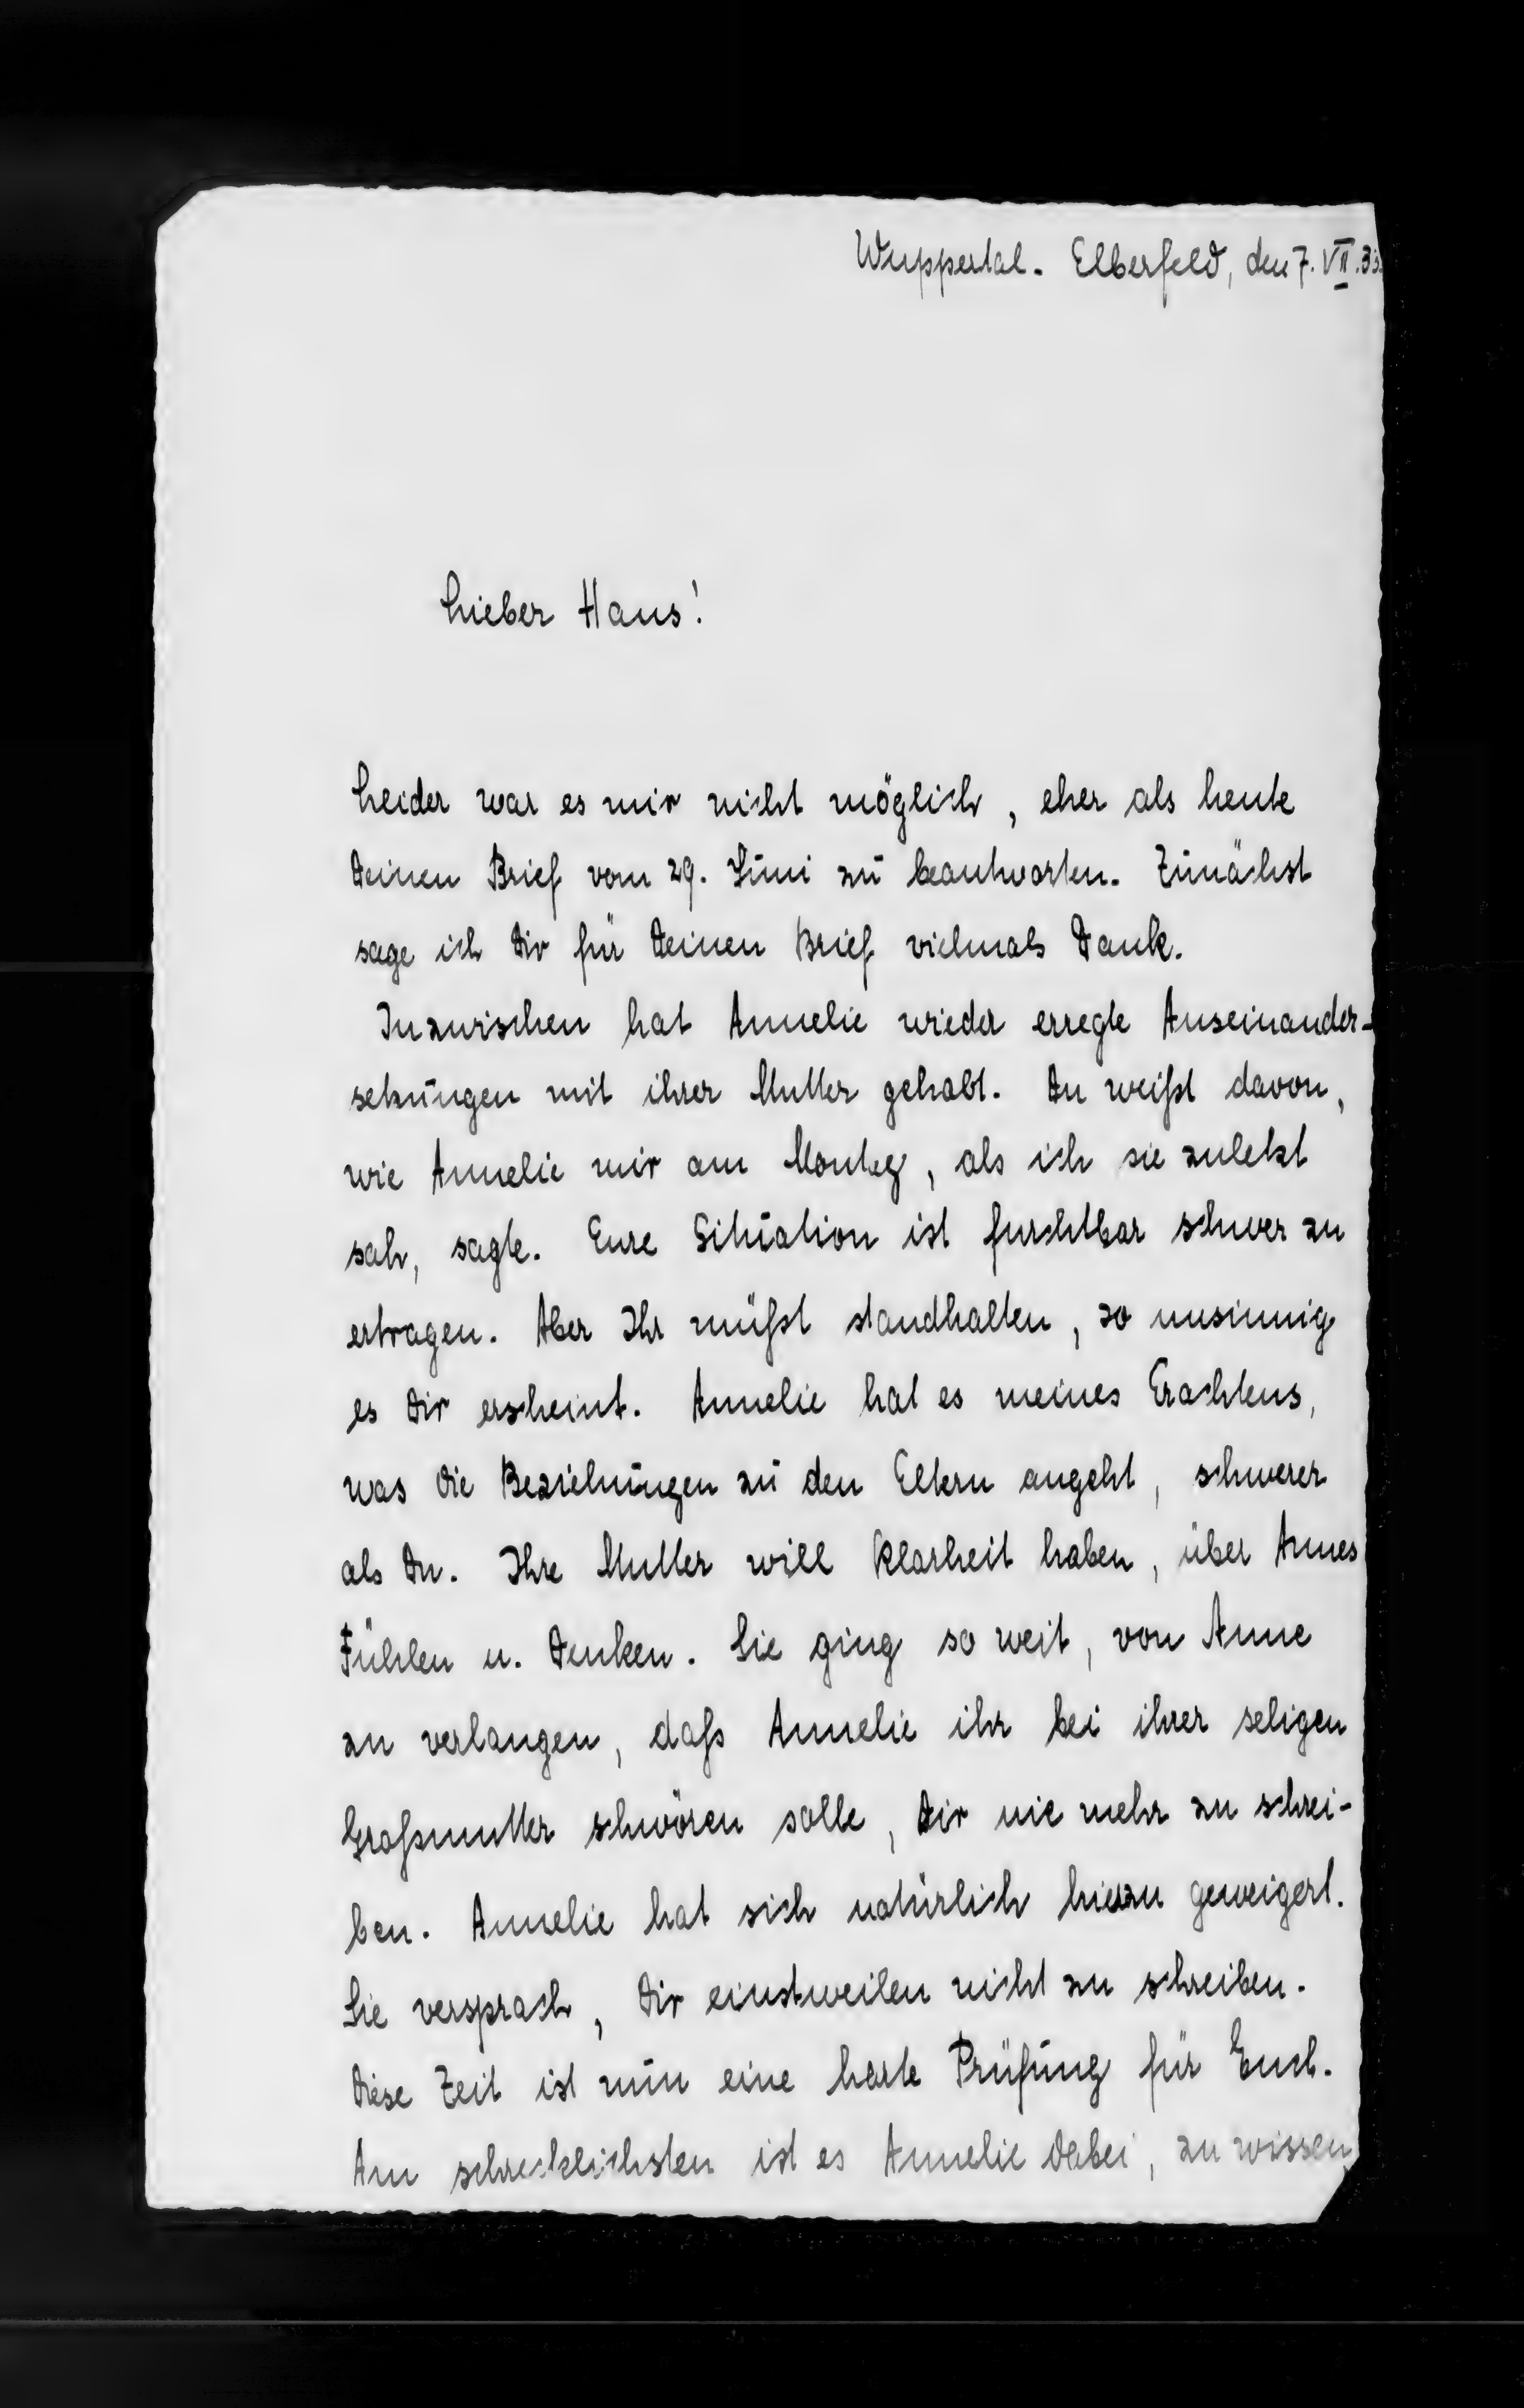 Wuppertal-Elberfeld, den 7. VII. 33.
Lieber Hans!
Leider war es mir nicht möglich, eher als heute
Deinen Brief vom 29. Juni zu beantworten. Zunächst
sage ich Dir für Deinen Brief vielmals Dank.
Inzwischen hat Annelie wieder erregte Auseinander-
setzungen mit ihrer Mutter gehabt. Du weißt davon,
wie Annelie mir am Montag, als ich sie zuletzt
sah, sagte. Eure Situation ist furchtbar schwer zu
ertragen. Aber Ihr müßt standhalten, so unsinnig
es Dir erscheint. Annelie hat es meines Erachtens,
was die Beziehungen zu den Eltern angeht, schwerer
als Du. Ihre Mutter will Klarheit haben, über Annes
Fühlen u. Denken. Sie ging so weit, von Anne
zu verlangen, daß Annelie ihr bei ihrer seligen
Großmutter schwören solle, Dir nie mehr zu schrei-
ben. Annelie hat sich natürlich hierzu geweigert.
Sie versprach, Dir einstweilen nicht zu schreiben.
Diese Zeit ist nun eine harte Prüfung für Euch.
Am schrecklichsten ist es Annelie dabei, zu wissen,